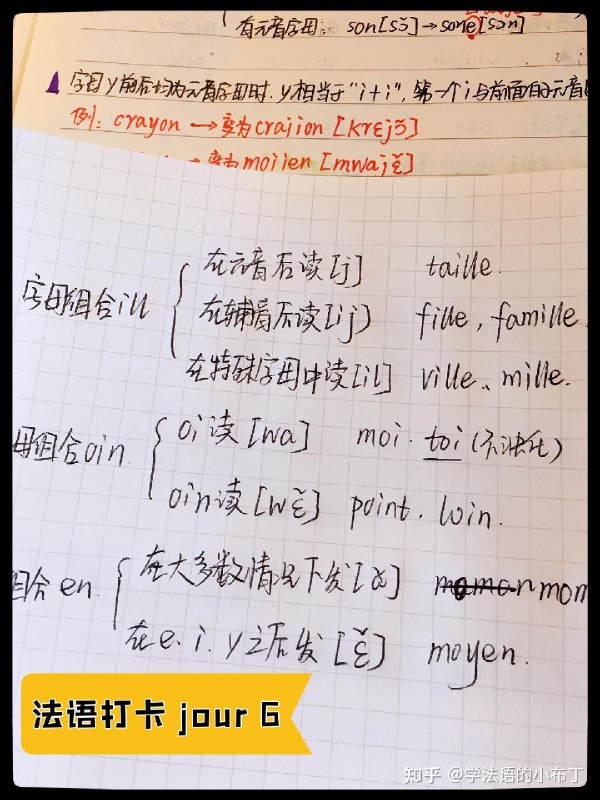 有元音字母: son[sɔ̃]→sone[sɔn]
字母y前后均为元音字母时.y相当于"i+i",第一个i与前面的元音
例: crayon→变为craiion [krɛjɔ̃]
→变为moiien [mwajɛ̃]
字母组合ill
在元音后读[j] taille.
在辅音后读[ij] fille, famille
在特殊字母中读[il] ville、mille.
母组合oin.
oi读[wa] moi. toi
oin读[wɛ̃] point. loin.
组合en.
在大多数情况下发[ɑ̃] mom
在e.i.y之后发[ɛ̃] moyen.
法语打卡 jour 6
知乎 @学法语的小布丁